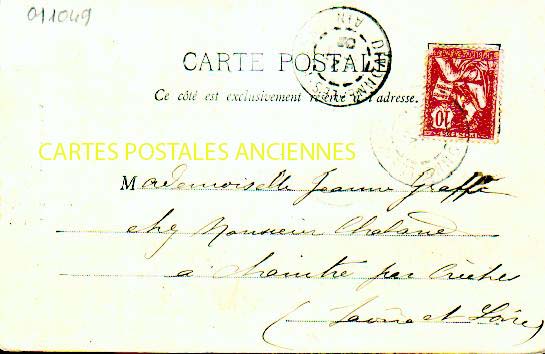 011049
CARTE POSTALE
Ce côté est exclusivement réservé à l'adresse.
AIN
10
CARTES POSTALES ANCIENNES
Mademoiselle Jeanne Graffe
chez Monsieur Chaland
à Chaintré par Crèches
(Saône et Loire)